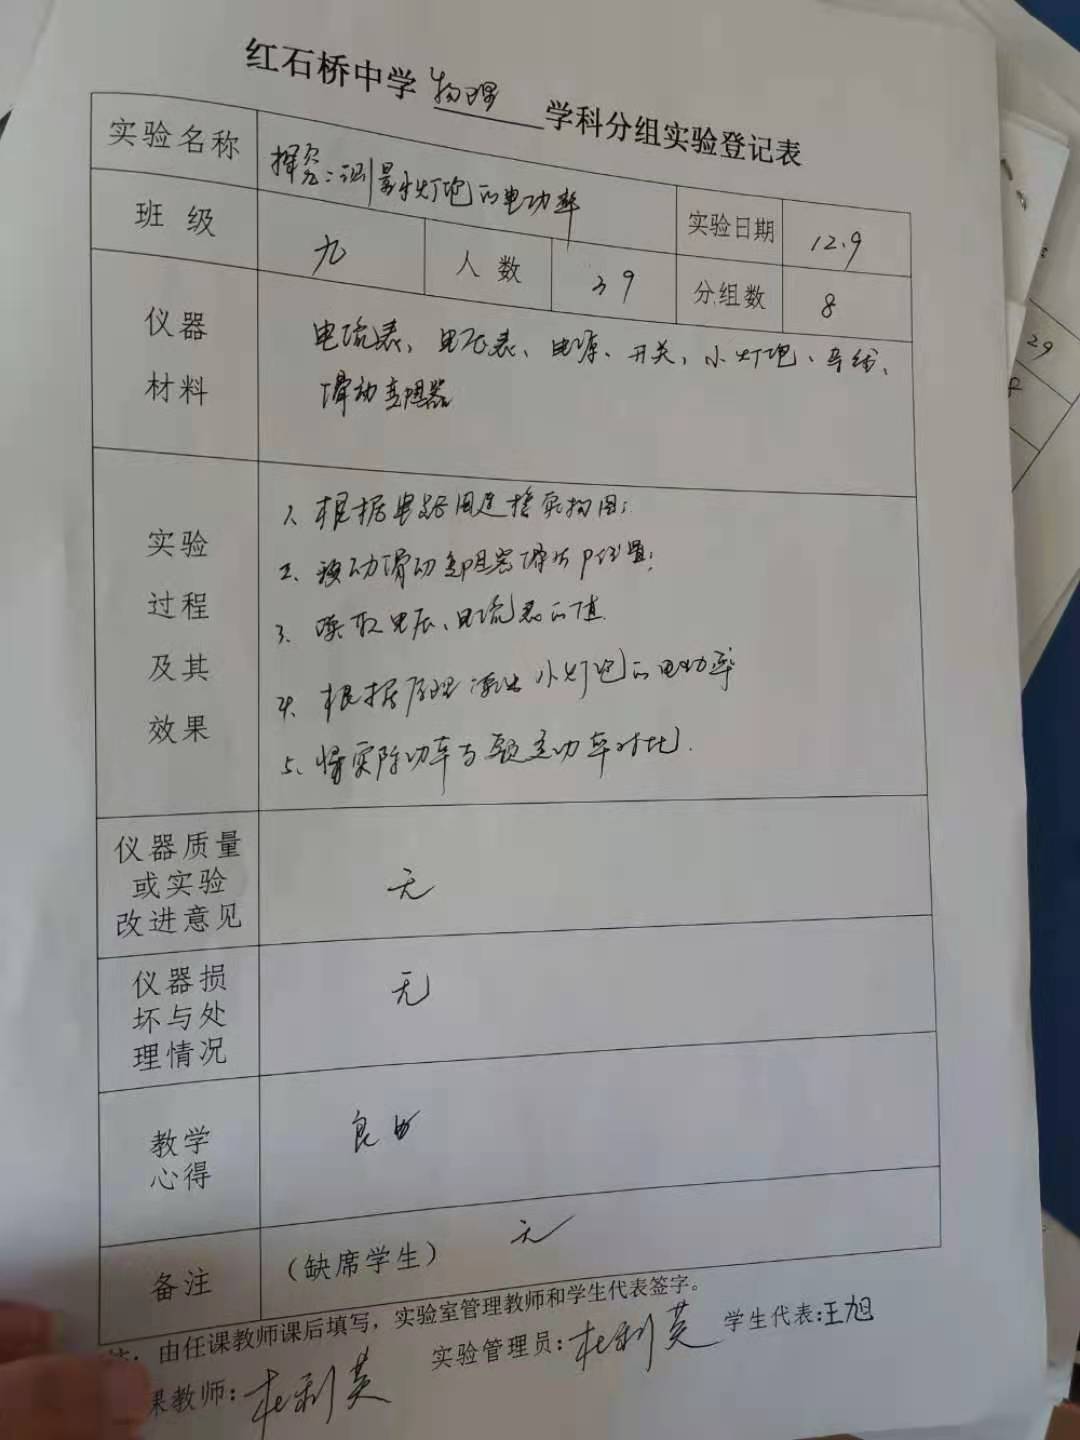 红石桥中学 物理 学科分组实验登记表
实验名称 探究:测量小灯泡的电功率 实验日期 12.9
班级 九 人数 39 分组数 8
仪器 电流表、电压表、电源、开关、小灯泡、导线、
材料 滑动变阻器
实验 1、根据电路图连接实物图;
过程 2、移动滑动变阻器滑片P位置;
及其 3、读取电压、电流表的值
效果 4、根据原理算出小灯泡的电功率
5、将实际功率与额定功率对比.
仪器质量
或实验 无
改进意见
仪器损
坏与处 无
理情况
教学 良好
心得
备注 (缺席学生) 无
注:由任课教师课后填写,实验室管理教师和学生代表签字。
课教师:杜利英 实验管理员:杜利英 学生代表:王旭
29